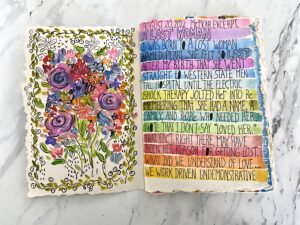 AUGUST 20, 2022 MEMOIR EXCERPT
A LOST WOMAN
I WAS BORN TO A LOST WOMAN
AFTER MY BIRTH THAT SHE WENT
STRAIGHT TO WESTERN STATE MEN
TAL HOSPITAL UNTIL THE ELECTRIC
SHOCK THERAPY JOLTED HER INTO RE-
MEMBERING THAT SHE HAD A NAME, A
FAMILY AND PEOPLE WHO NEEDED HER.
NOTE THAT I DON'T SAY "LOVED HER."
IN FACT, RIGHT THERE MAY HAVE
BEEN HER REASON FOR GETTING LOST.
WHAT DID WE UNDERSTAND OF LOVE...
WE WORK DRIVEN UNDEMONSTRATIVE